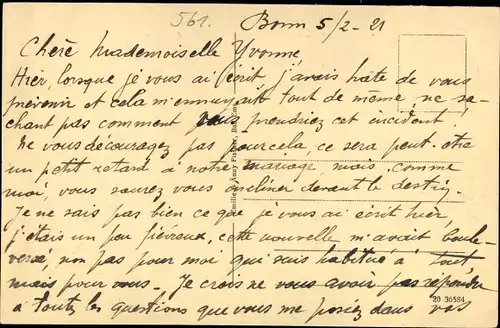 561.
Bonn 5/2-21
Chère Mademoiselle Yvonne,
Hier, lorsque je vous ai écrit j'avais hate de vous
prévenir et cela m'ennuyait tout de même, ne sa-
chant pas comment vous prendriez cet incident,
Ne vous découragez pas pourcela, ce sera peut-être
un petit retard à notre mariage, mais comme
moi, vous saurez vous incliner devant le destin.
Je ne sais pas bien ce que je vous ai écrit hier,
j'étais un peu fiévreux, cette nouvelle m'avait boule-
versé, non pas pour moi qui suis habitué à tout,
mais pour vous. Je crois ne vous avoir pas répondu
à toutes les questions que vous me posiez dans vos
20 36584